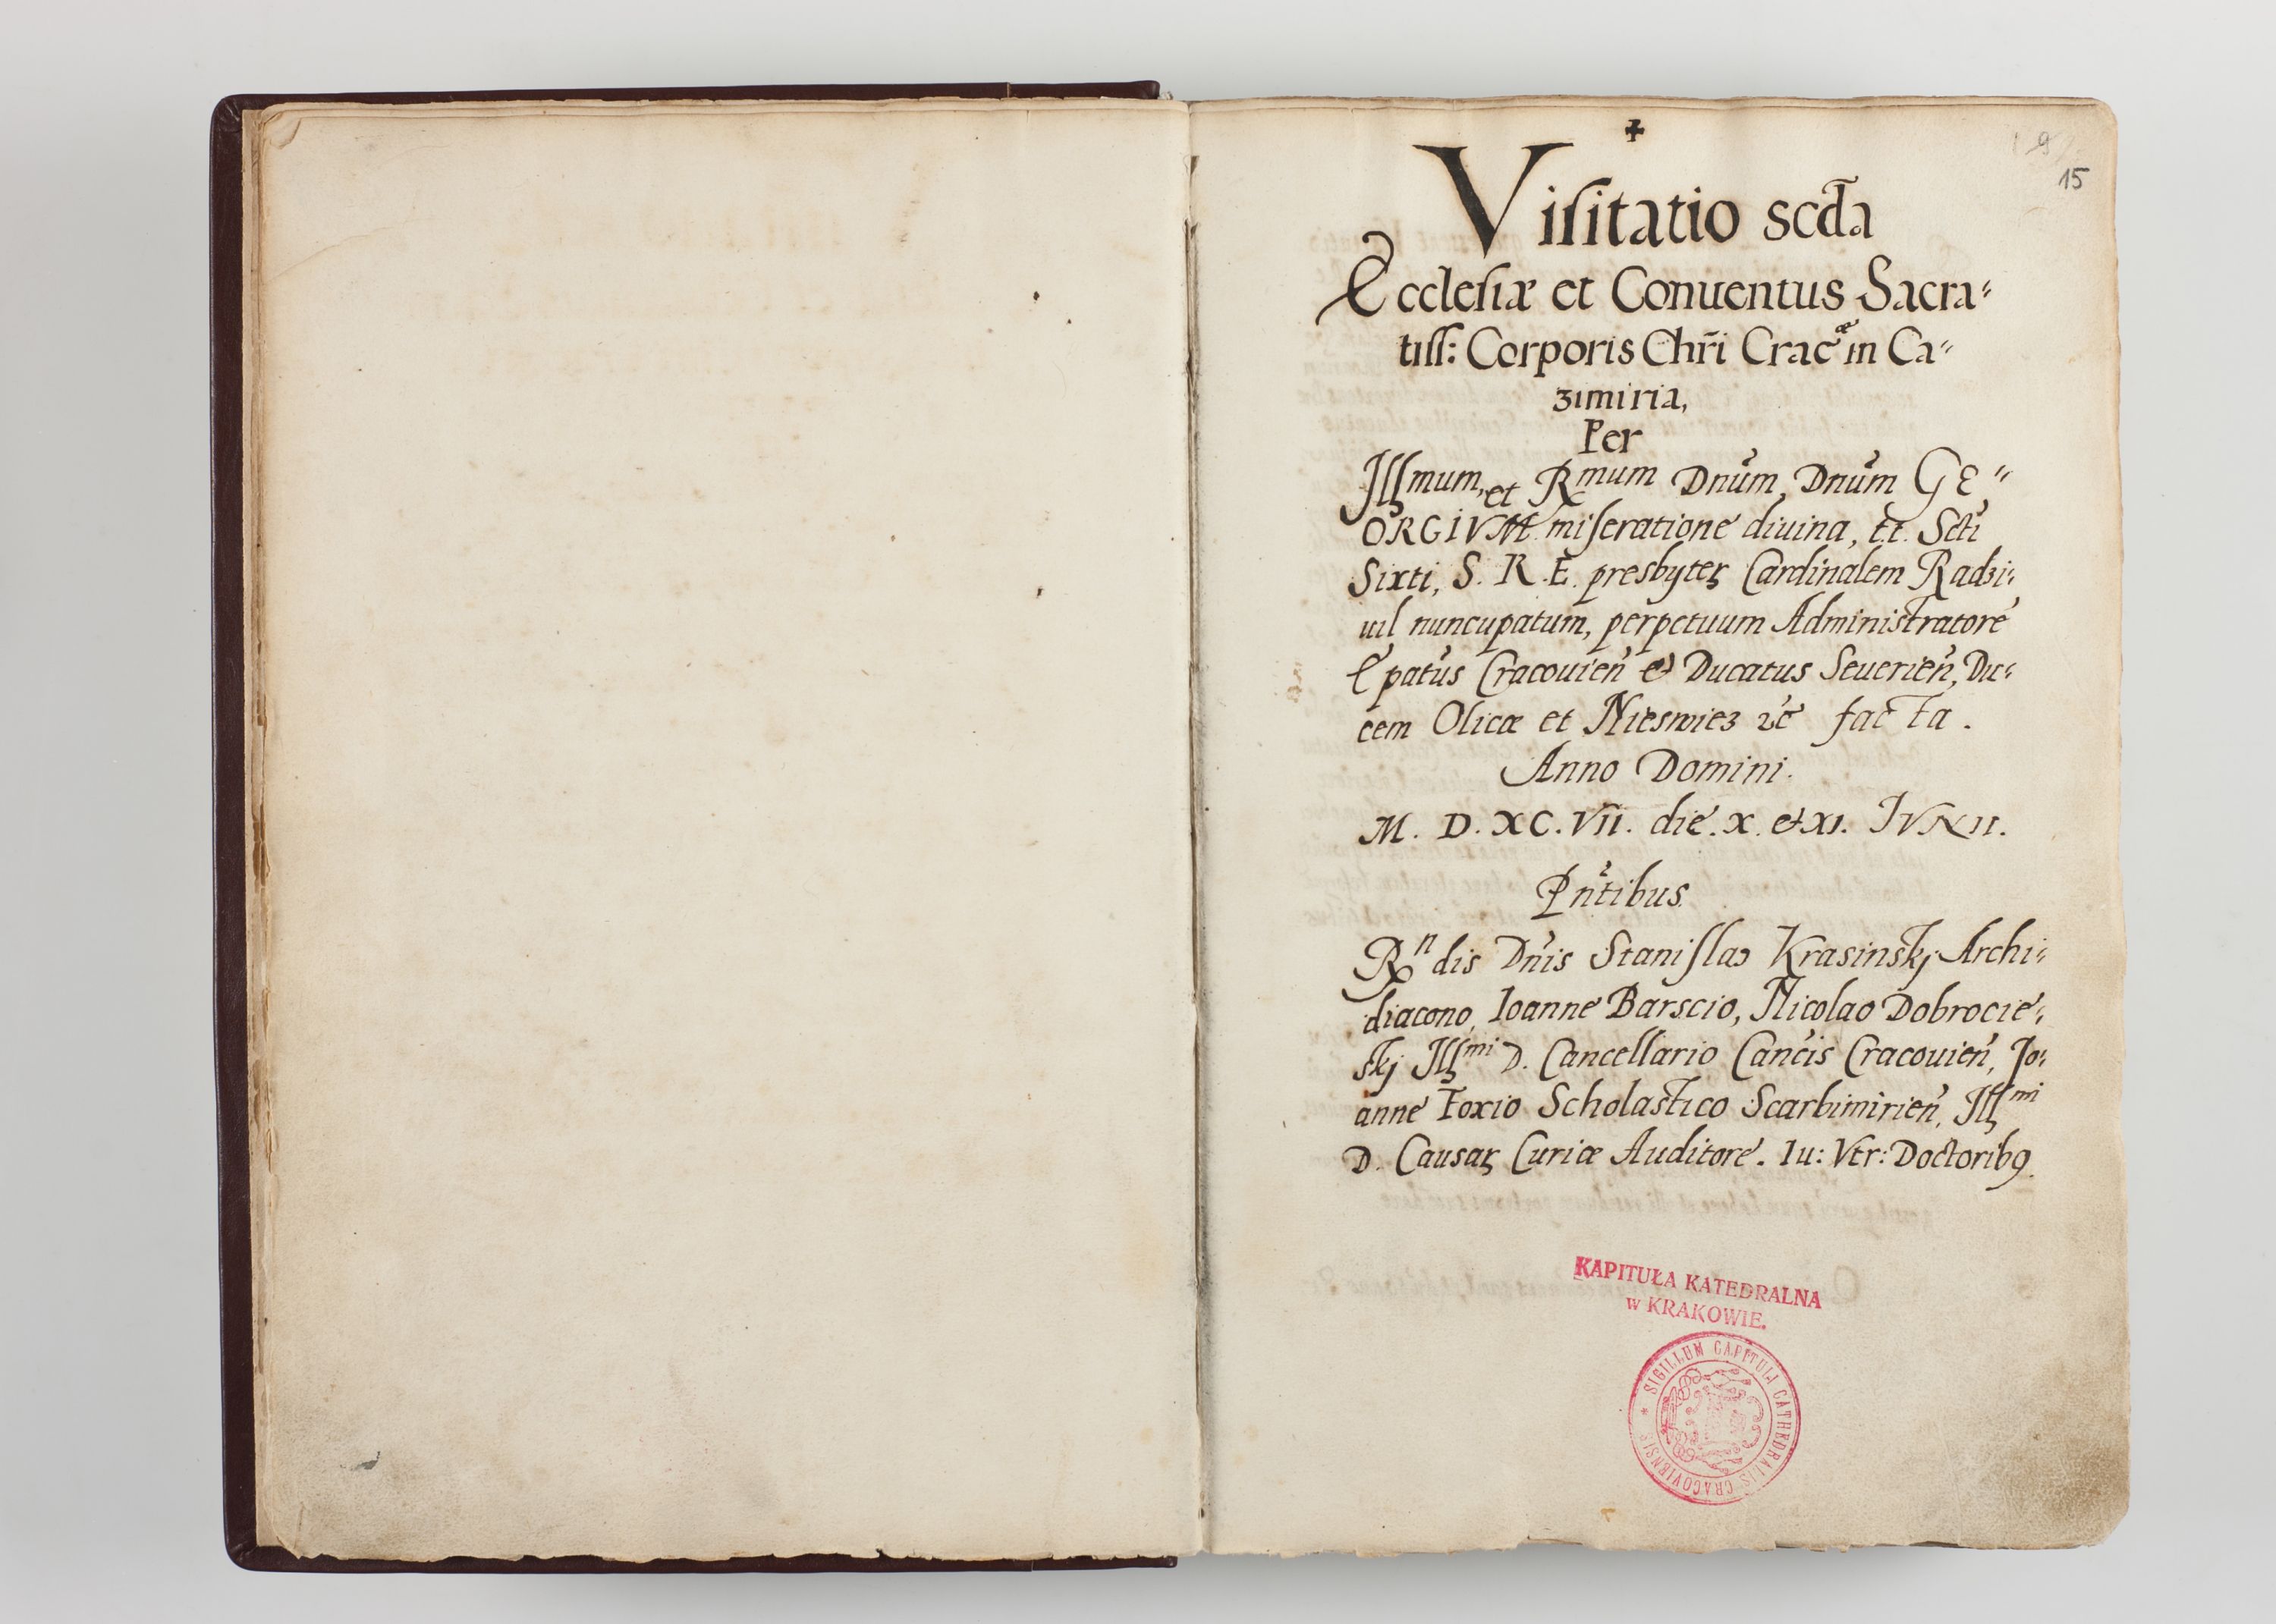 15
Visitatio scda
Ecclesiæ et Conuentus Sacra-
tiss: Corporis Chri Cracæ in Ca-
zimiria,
Per
Illmum, et Rmum Dnum, Dnum GE-
ORGIVM miseratione diuina, tt. Scti
Sixti, S. R. E. presbyteꝝ Cardinalem Radzi-
uil nuncupatum, perpetuum Administratorē
Epatus Cracouien̄ & Ducatus Seuerien̄, Du-
cem Olicæ et Nieswiez ⁊c facta.
Anno Domini.
M. D. XC. VII. die. X. & XI. IVNII.
Pn̄tibus
Rndis Dnis Stanislao Krasinskj Archi-
diacono, Ioanne Barscio, Nicolao Dobrocie-
skj Illmi D. Cancellario Can̄cis Cracouien̄, Jo-
anne Foxio Scholastico Scarbimirien̄, Illmi
D. Causaꝝ Curiæ Auditore. Iu: Vtr: Doctoribꝯ
KAPITUŁA KATEDRALNA
w KRAKOWIE.
* SIGILLUM CAPITULI CATHEDRALIS CRACOVIENSIS